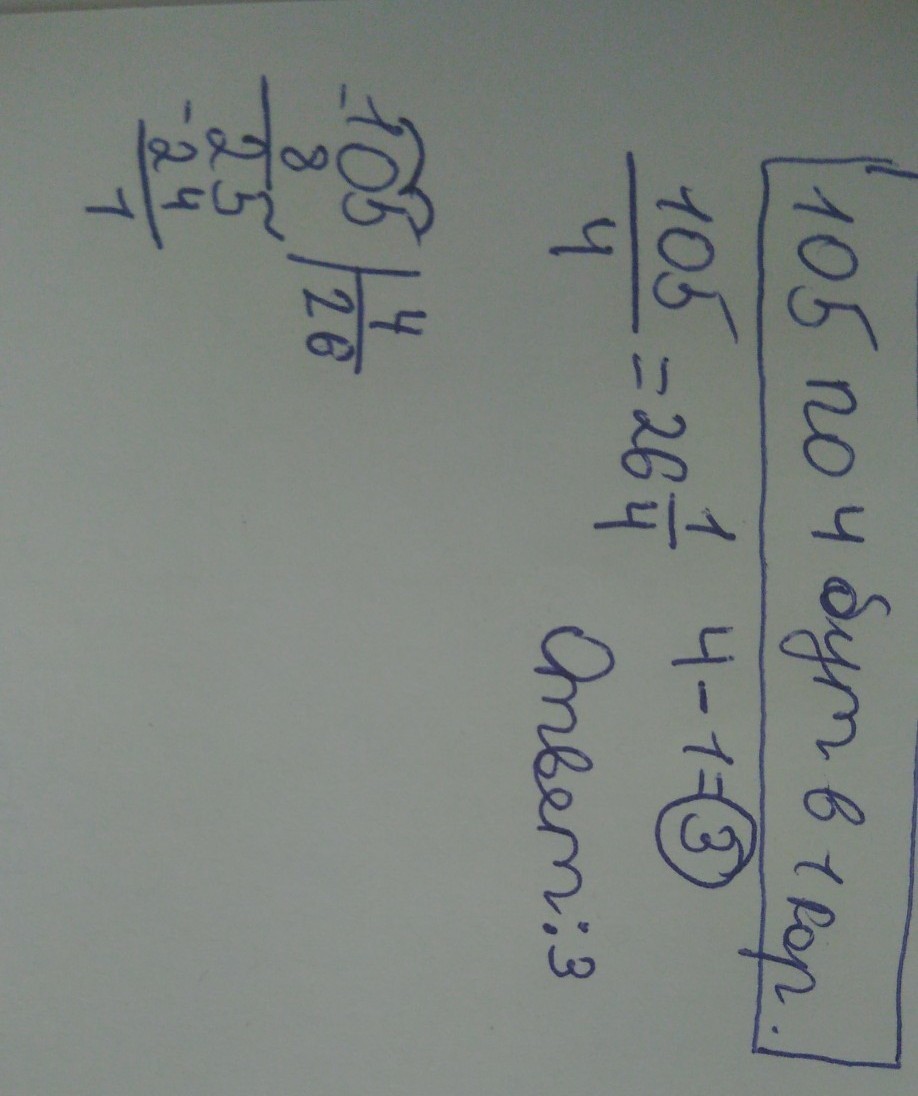 105 по 4 бут в 1 кор.
105/4 = 26 1/4 4 - 1 = 3
Ответ: 3
-105 | 4
8 | 26
25
-24
1